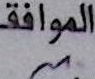 الموافقة